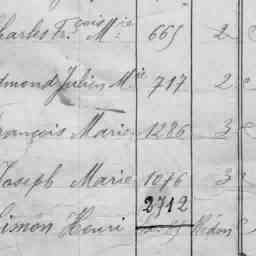 Charles Fr.çois M.ie 665 2
Edmond Julien M.ie 717 2
François Marie 1286 3
Joseph Marie 1076 3
2712
Simon Henri Médon